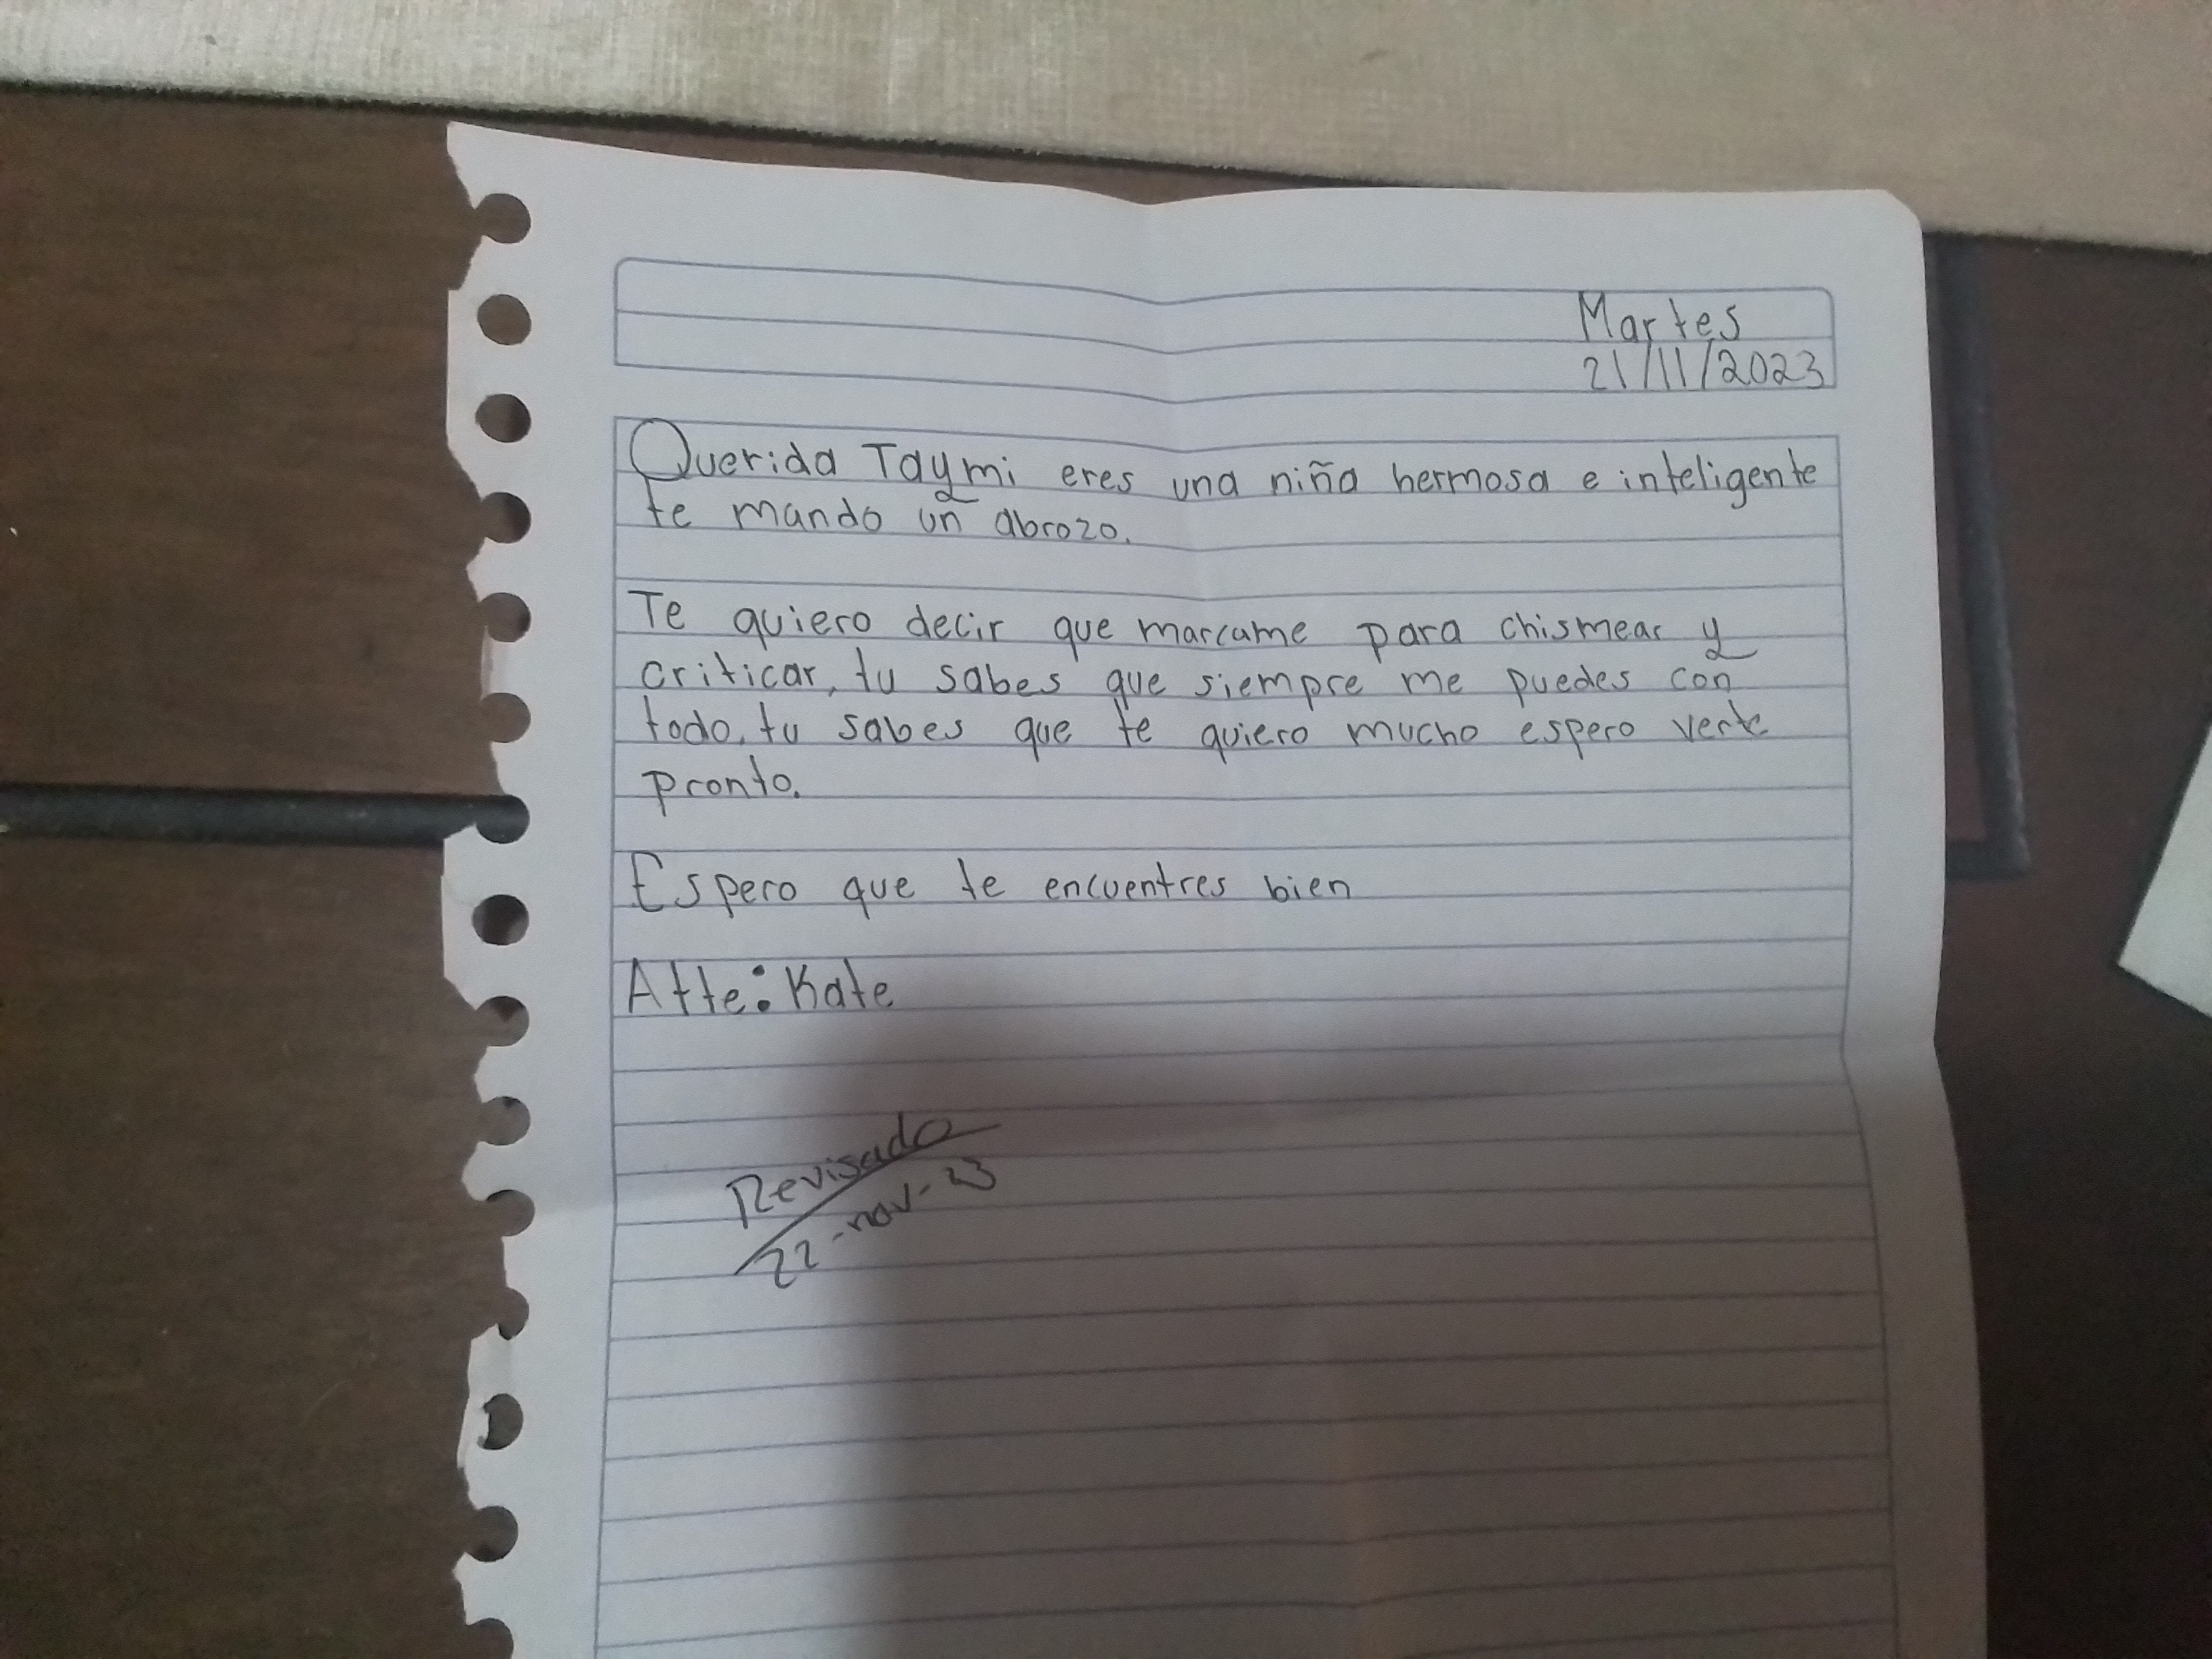 Martes
21/11/2023
Querida Taymi eres una niña hermosa e inteligente
te mando un abrozo.
Te quiero decir que marcame para chismear y
criticar, tu sabes que siempre me puedes con
todo, tu sabes que te quiero mucho espero verte
pronto.
Espero que te encuentres bien
Atte: Kate
Revisado
22-nov-23